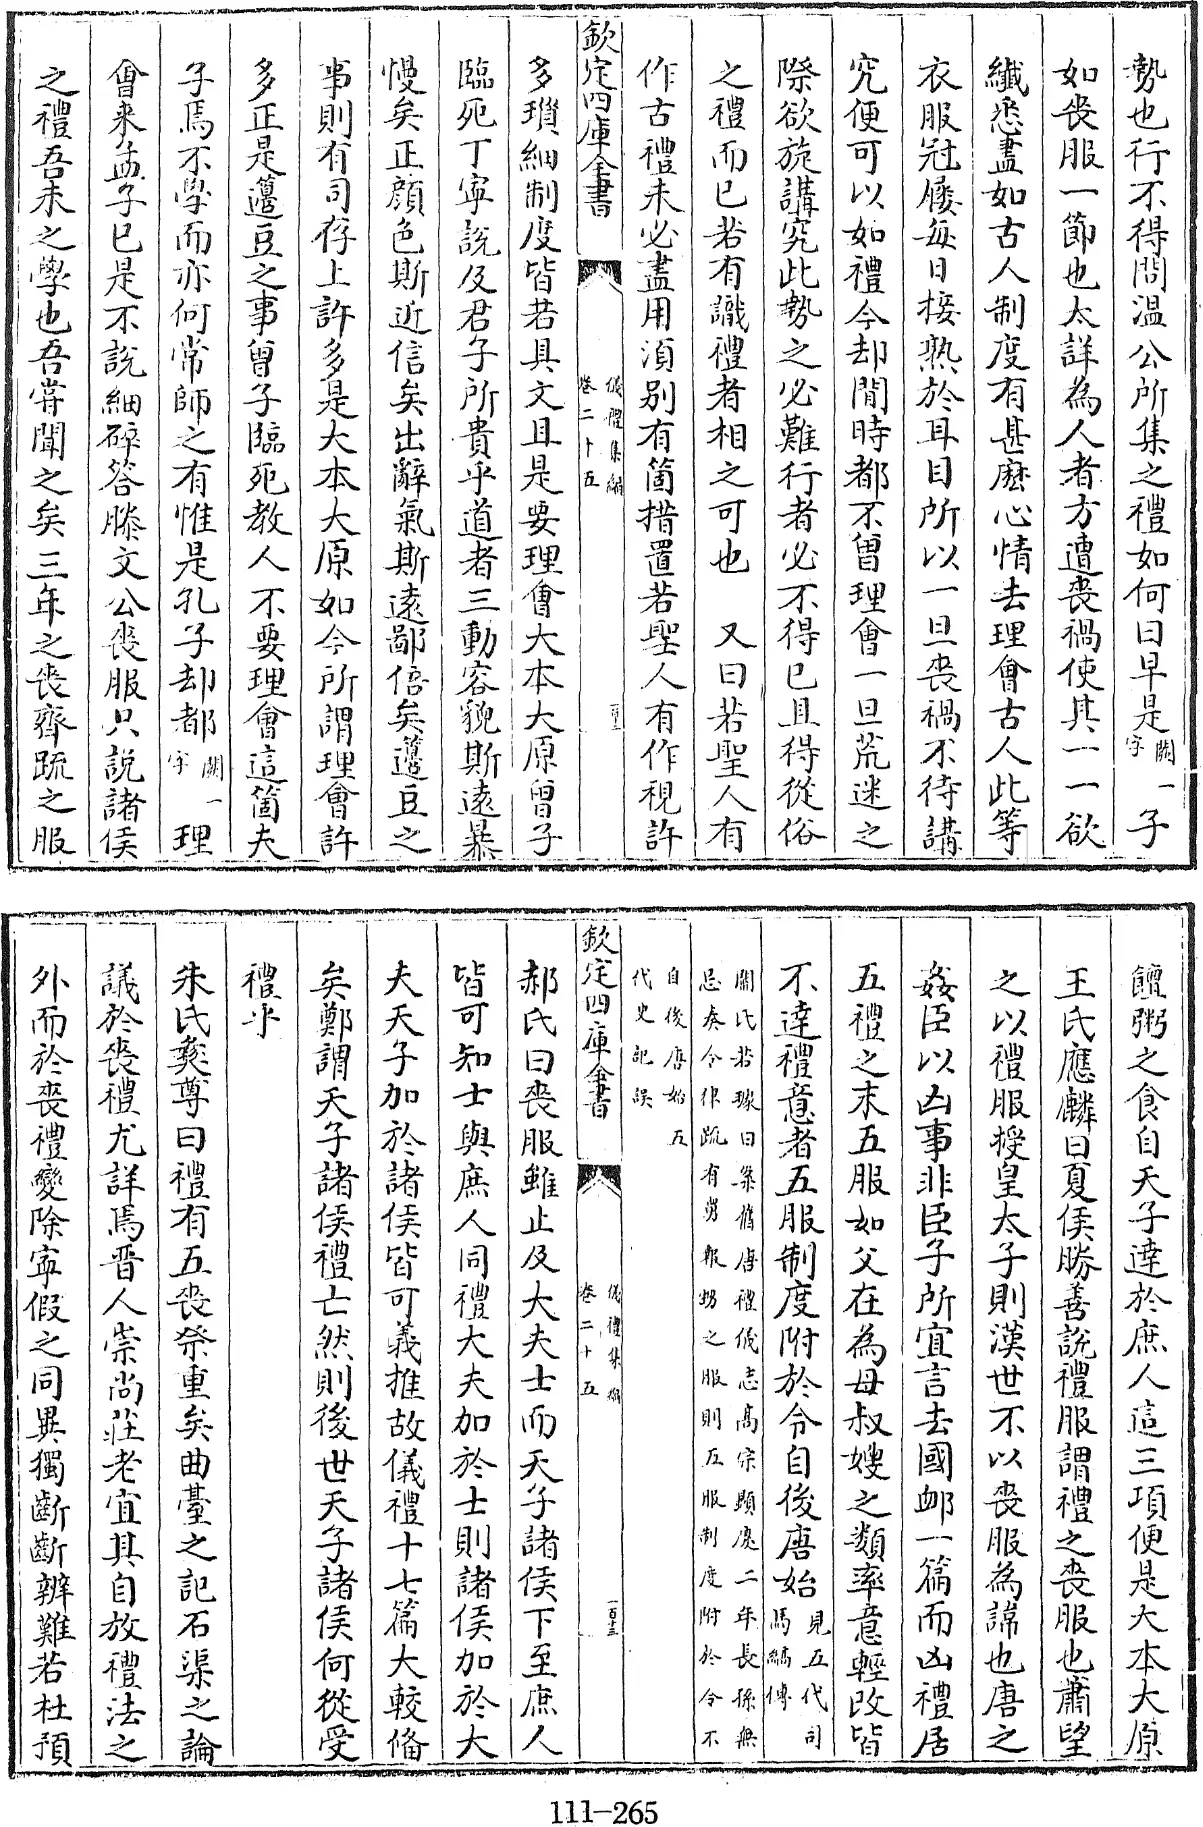 勢也行不得問溫公所集之禮如何曰早是闕一字子
如喪服一節也太詳為人者方遭喪禍使其一一欲
纖悉盡如古人制度有甚麽心情去理會古人此等
衣服冠屨每日接熟於耳目所以一旦喪禍不待講
究便可以如禮今却閒時都不曽理會一旦荒迷之
際欲旋講究此勢之必難行者必不得已且得從俗
之禮而已若有識禮者相之可也　又曰若聖人有
作古禮未必盡用湏别有箇措置若聖人有作視許
欽定四庫全書
儀禮集編
卷二十五
多瑣細制度皆若具文且是要理會大本大原曽子
臨死丁寧説及君子所貴乎道者三動容貌斯遠暴
慢矣正顔色斯近信矣出辭氣斯遠鄙倍矣籩豆之
事則有司存上許多是大本大原如今所謂理會許
多正是籩豆之事曽子臨死教人不要理會這箇夫
子焉不學而亦何常師之有惟是孔子却都闕一字理
會来孟子已是不説細碎答滕文公喪服只説諸侯
之禮吾未之學也吾嘗聞之矣三年之喪齊疏之服
饘粥之食自天子達於庶人這三項便是大本大原
王氏應麟曰夏侯勝善説禮服謂禮之喪服也蕭望
之以禮服授皇太子則漢世不以喪服為諱也唐之
姦臣以凶事非臣子所宜言去國䘏一篇而凶禮居
五禮之末五服如父在為母叔嫂之類率意輕改皆
不達禮意者五服制度附於令自後唐始見五代司馬縞傳
閻氏若璩曰案舊唐禮儀志髙宗顯慶二年長孫無
忌奏今律疏有舅報甥之服則五服制度附於令不
自後唐始五
代史記誤
欽定四庫全書
儀禮集編
卷二十五
一百十三
郝氏曰喪服雖止及大夫士而天子諸侯下至庶人
皆可知士與庶人同禮大夫加於士則諸侯加於大
夫天子加於諸侯皆可義推故儀禮十七篇大較備
矣鄭謂天子諸侯禮亡然則後世天子諸侯何從受
禮乎
朱氏彛尊曰禮有五喪祭重矣曲臺之記石渠之論
議於喪禮尤詳焉晋人崇尚莊老宜其自放禮法之
外而於喪禮變除寧假之同異獨齗齗辨難若杜預
111-265